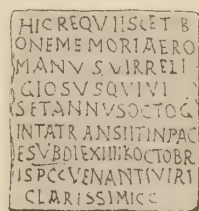 HIC REQVIISCET B
ONEMEMORIAERO
MANVS VIRRELI
GIOSVSQVIVI
SETANNVSOCTOG
INTATRANSIITINPAC
ESVBDIEXIIIIKOCTOBR
ISPCCVENANTIVIRI
CLARISSIMICC